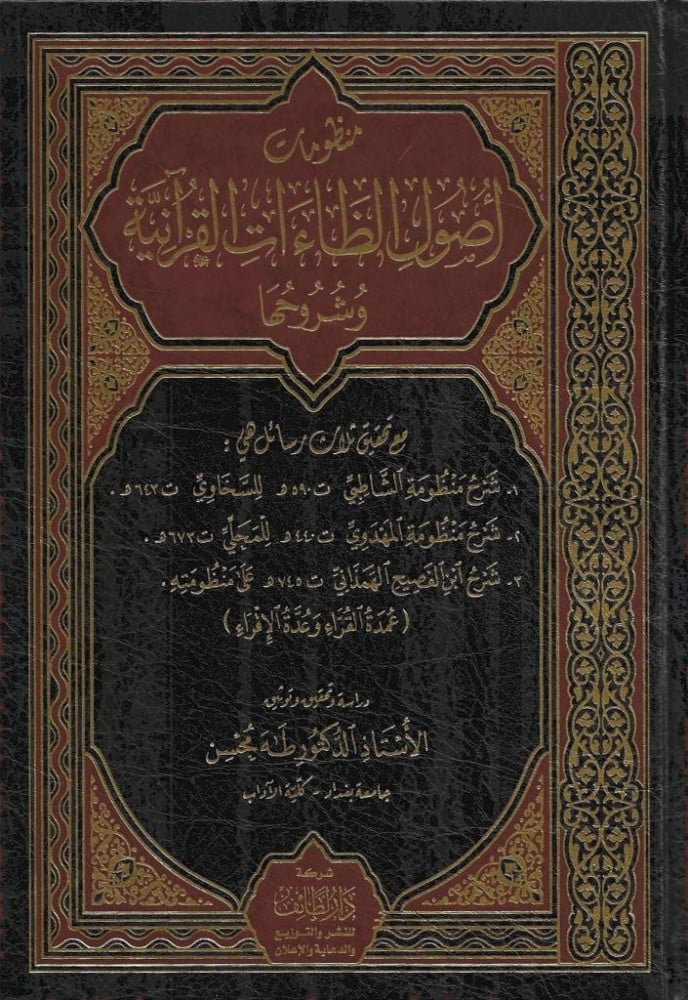 منظومات
أُصُولِ الظَّاءَاتِ القُرآنِيَّة
وَشُرُوحُهَا
مع تحقيق ثلاث رسائل هي :
١- شَرْحُ مَنْظُومَةِ الشَّاطِبِيِّ ت٥٩٠هـ لِلسَّخَاوِيِّ ت٦٤٣هـ .
٢- شَرْحُ مَنْظُومَةِ المَهْدَوِيِّ ت٤٤٠هـ لِلمَحَلِّيِّ ت٦٧٣هـ .
٣- شَرْحُ ابْنِ الفَصِيحِ الهَمَذَانِيِّ ت٧٤٥هـ عَلَى مَنْظُومَتِهِ .
( عُمْدَةُ القُرَّاءِ وَعُدَّةُ الإِقْرَاءِ )
دراسة وتحقيق وتوثيق
الأُسْتَاذُ الدَّكتُور طَه مُحْسِن
جامعة بغداد - كلية الآداب
شركة
دار لطائف
للنشر والتوزيع
والدعاية والإعلان